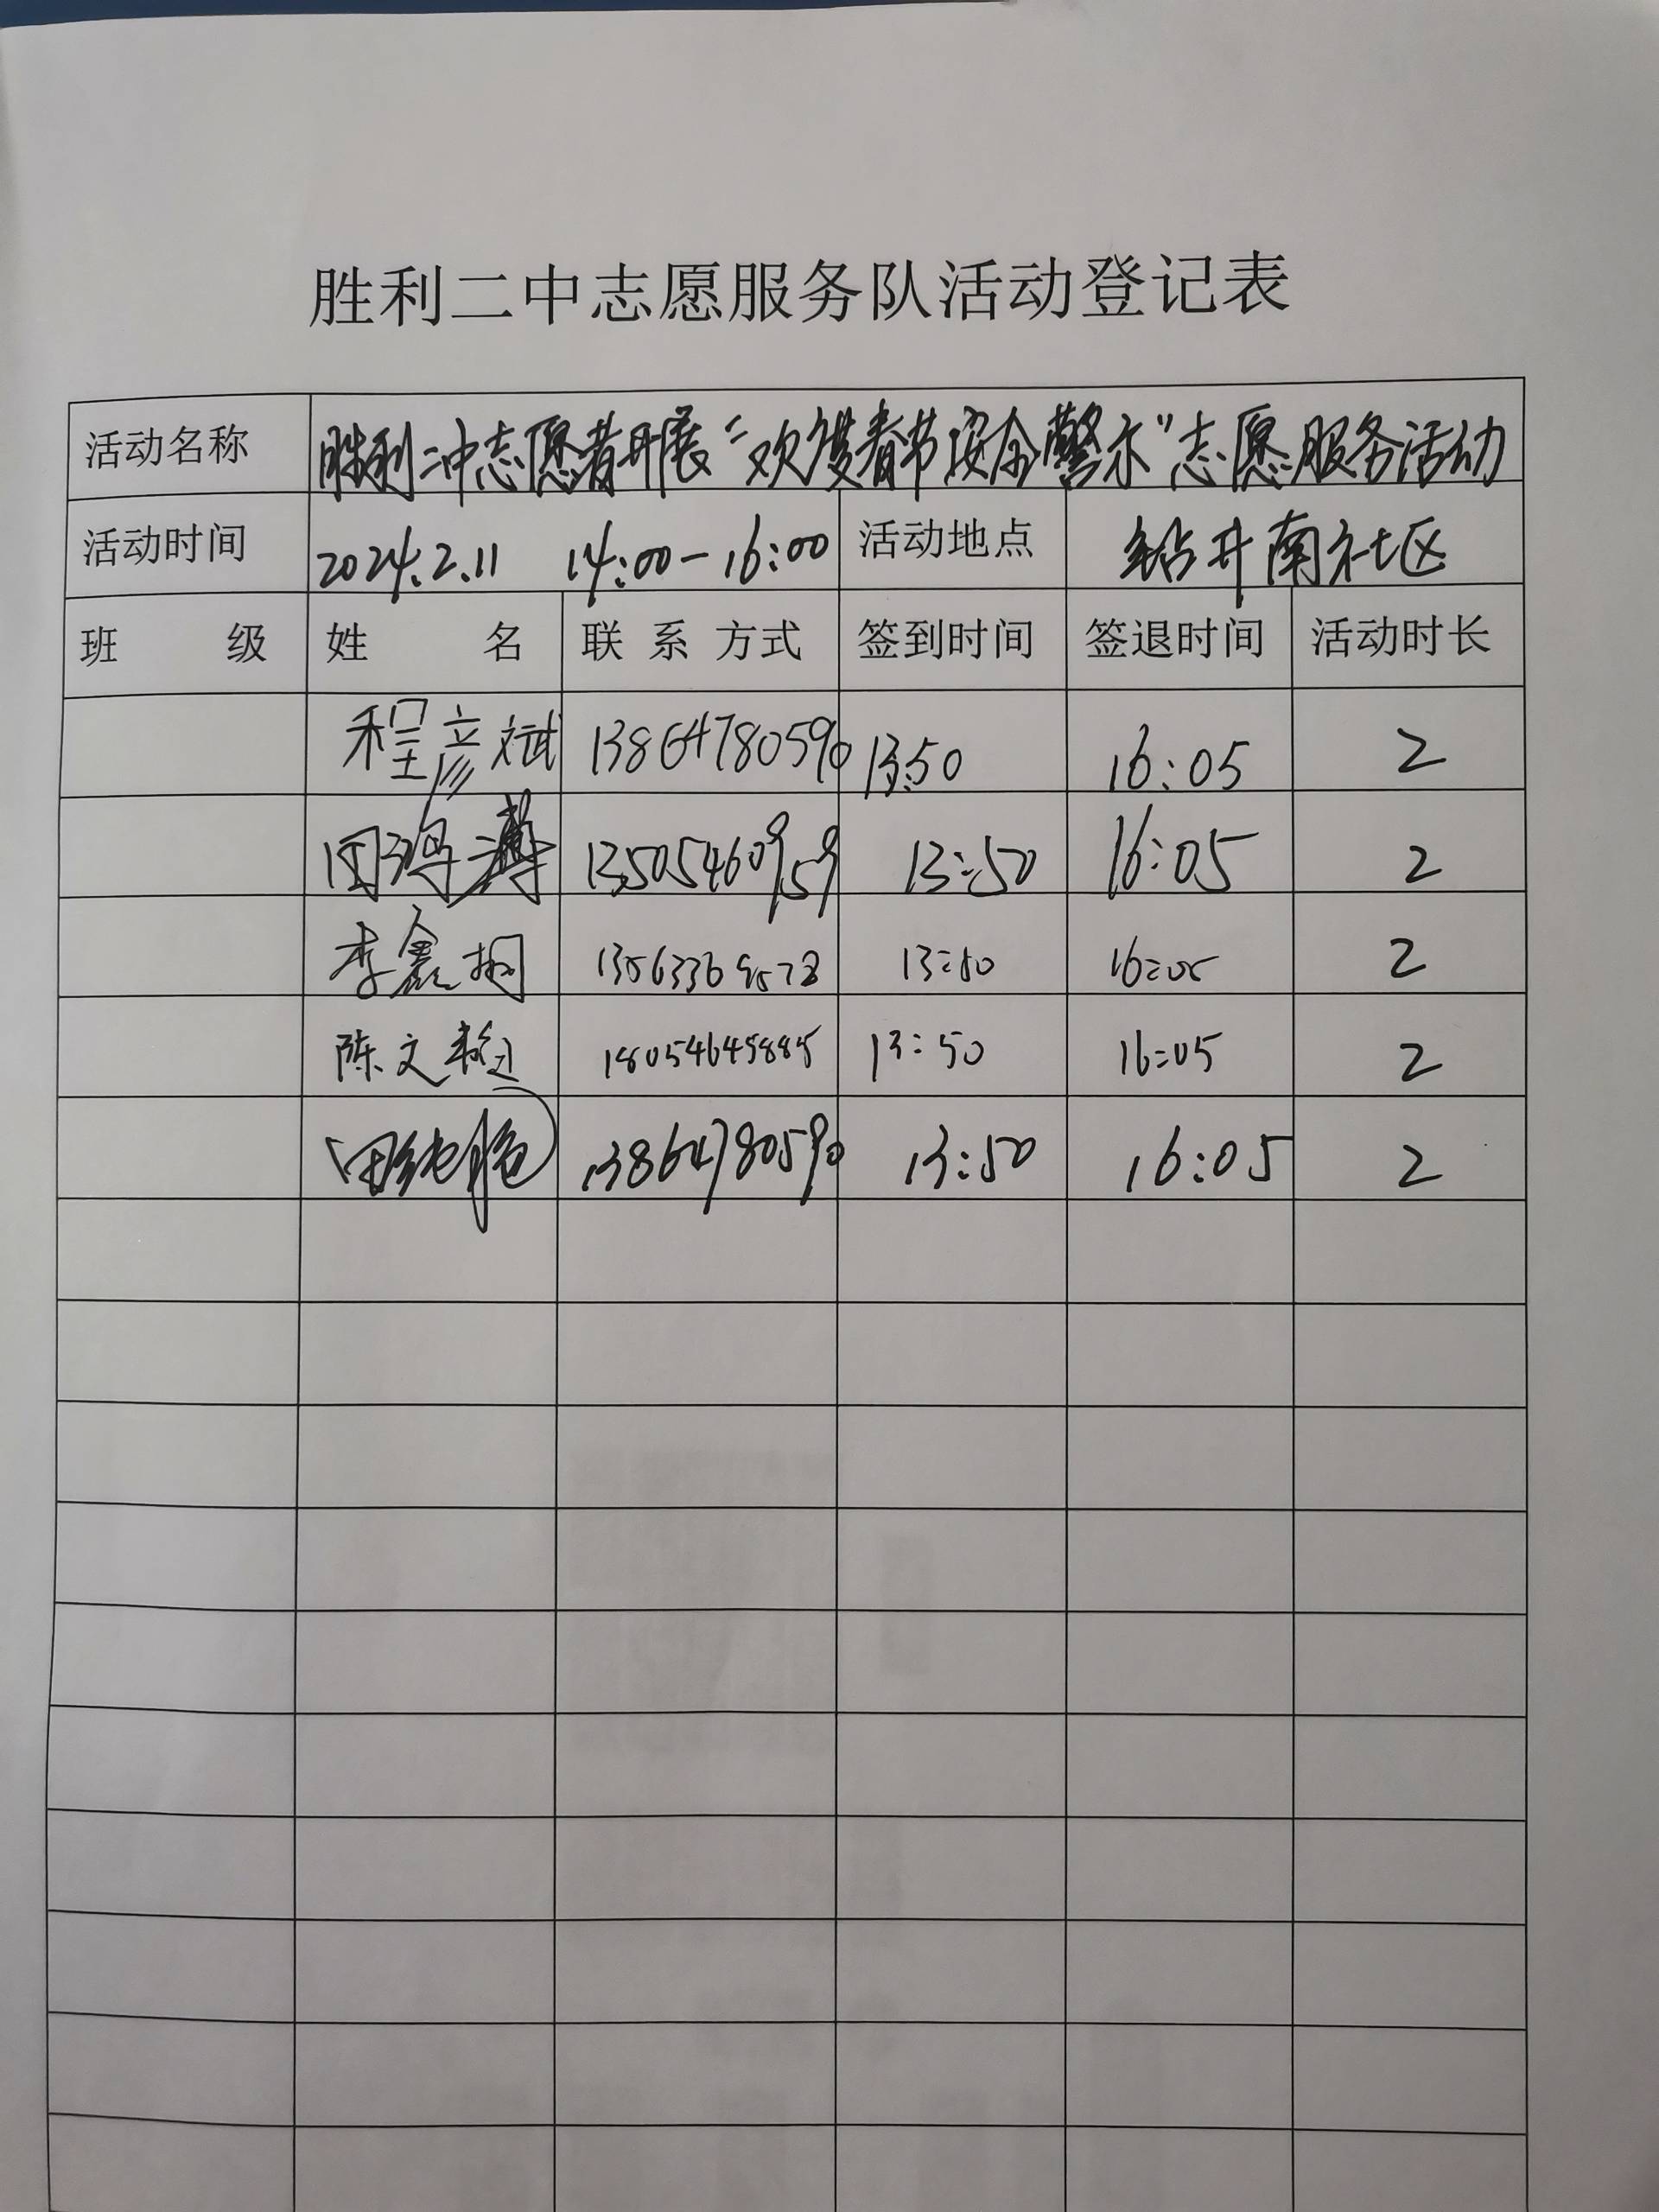 胜利二中志愿服务队活动登记表
活动名称 胜利二中志愿者开展“欢度春节安全警示”志愿服务活动
活动时间 2024.2.11 14:00-16:00 活动地点 钻井南社区
班 级 姓 名 联 系 方式 签到时间 签退时间 活动时长
程彦斌 13864780590 13:50 16:05 2
田鸿溥 13505460959 13:50 16:05 2
李鑫桐 13563369578 13:50 16:05 2
陈文 18054645885 13:50 16:05 2
田纯 13864780590 13:50 16:05 2